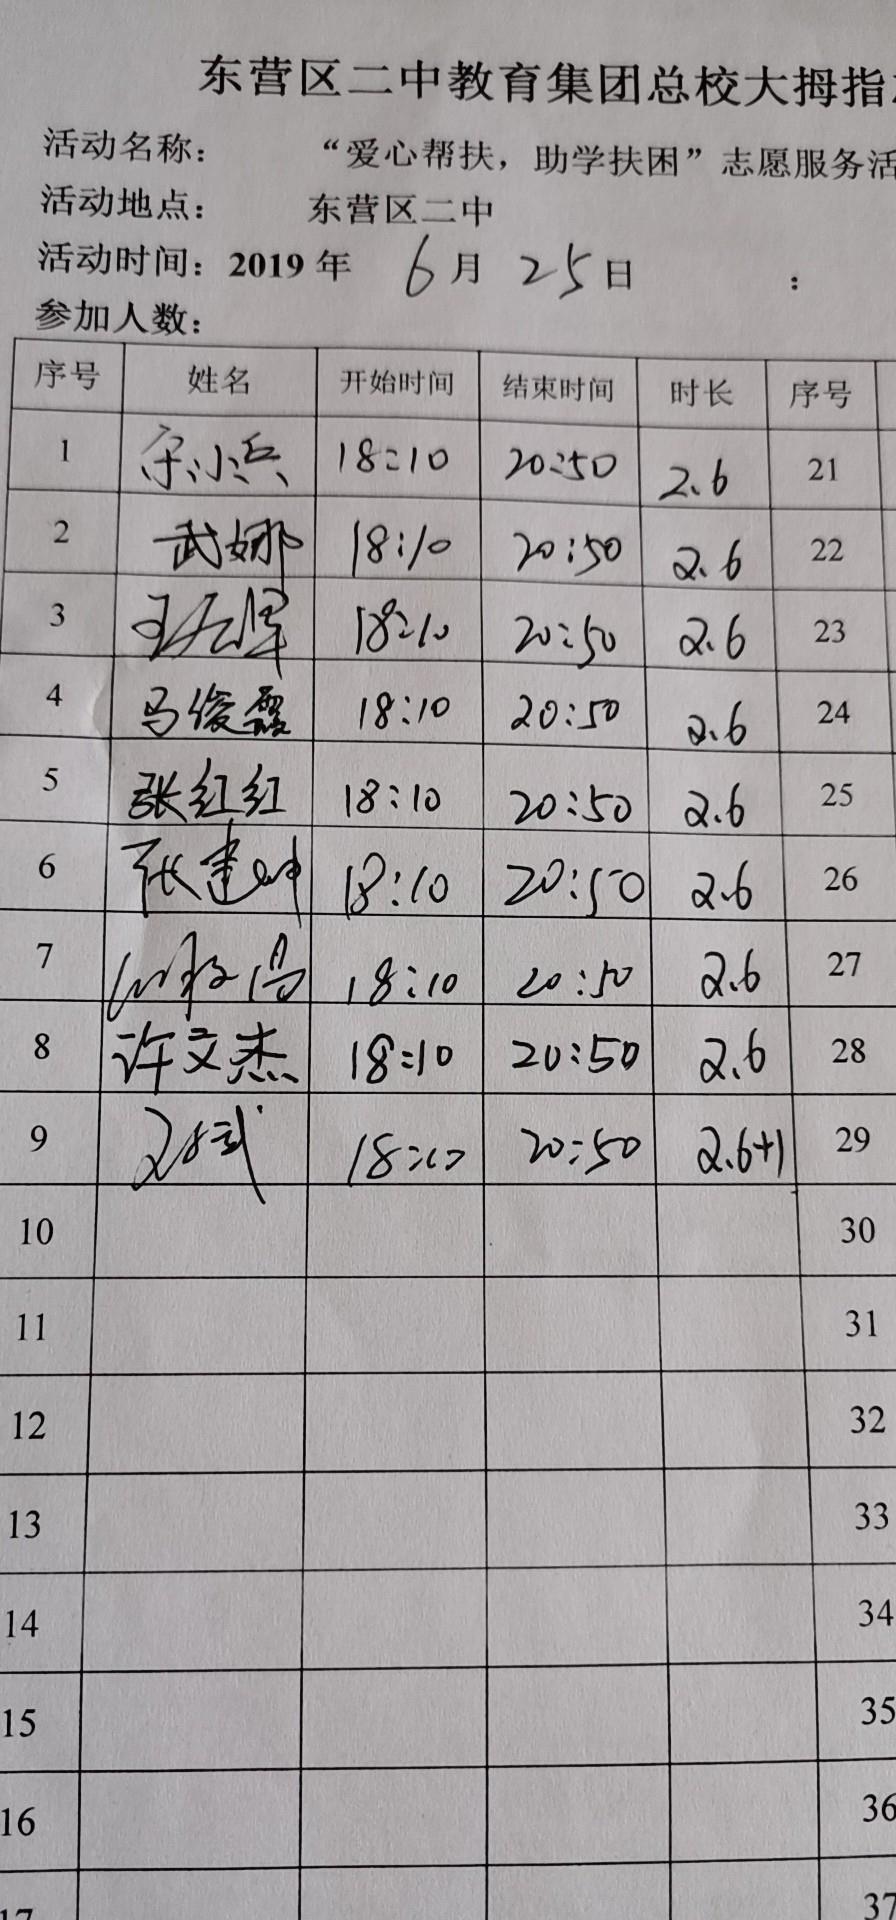 东营区二中教育集团总校大拇指
活动名称： “爱心帮扶，助学扶困”志愿服务活
活动地点： 东营区二中
活动时间：2019 年 6 月 25 日 ：
参加人数：
序号 姓名 开始时间 结束时间 时长 序号
1 宋小兵 18:10 20:50 2.6 21
2 武娜 18:10 20:50 2.6 22
3 18:10 20:50 2.6 23
4 马俊霞 18:10 20:50 2.6 24
5 张红红 18:10 20:50 2.6 25
6 张建坤 18:10 20:50 2.6 26
7 18:10 20:50 2.6 27
8 许文杰 18:10 20:50 2.6 28
9 18:10 20:50 2.6+1 29
10 30
11 31
12 32
13 33
14 34
15 35
16 36
17 37